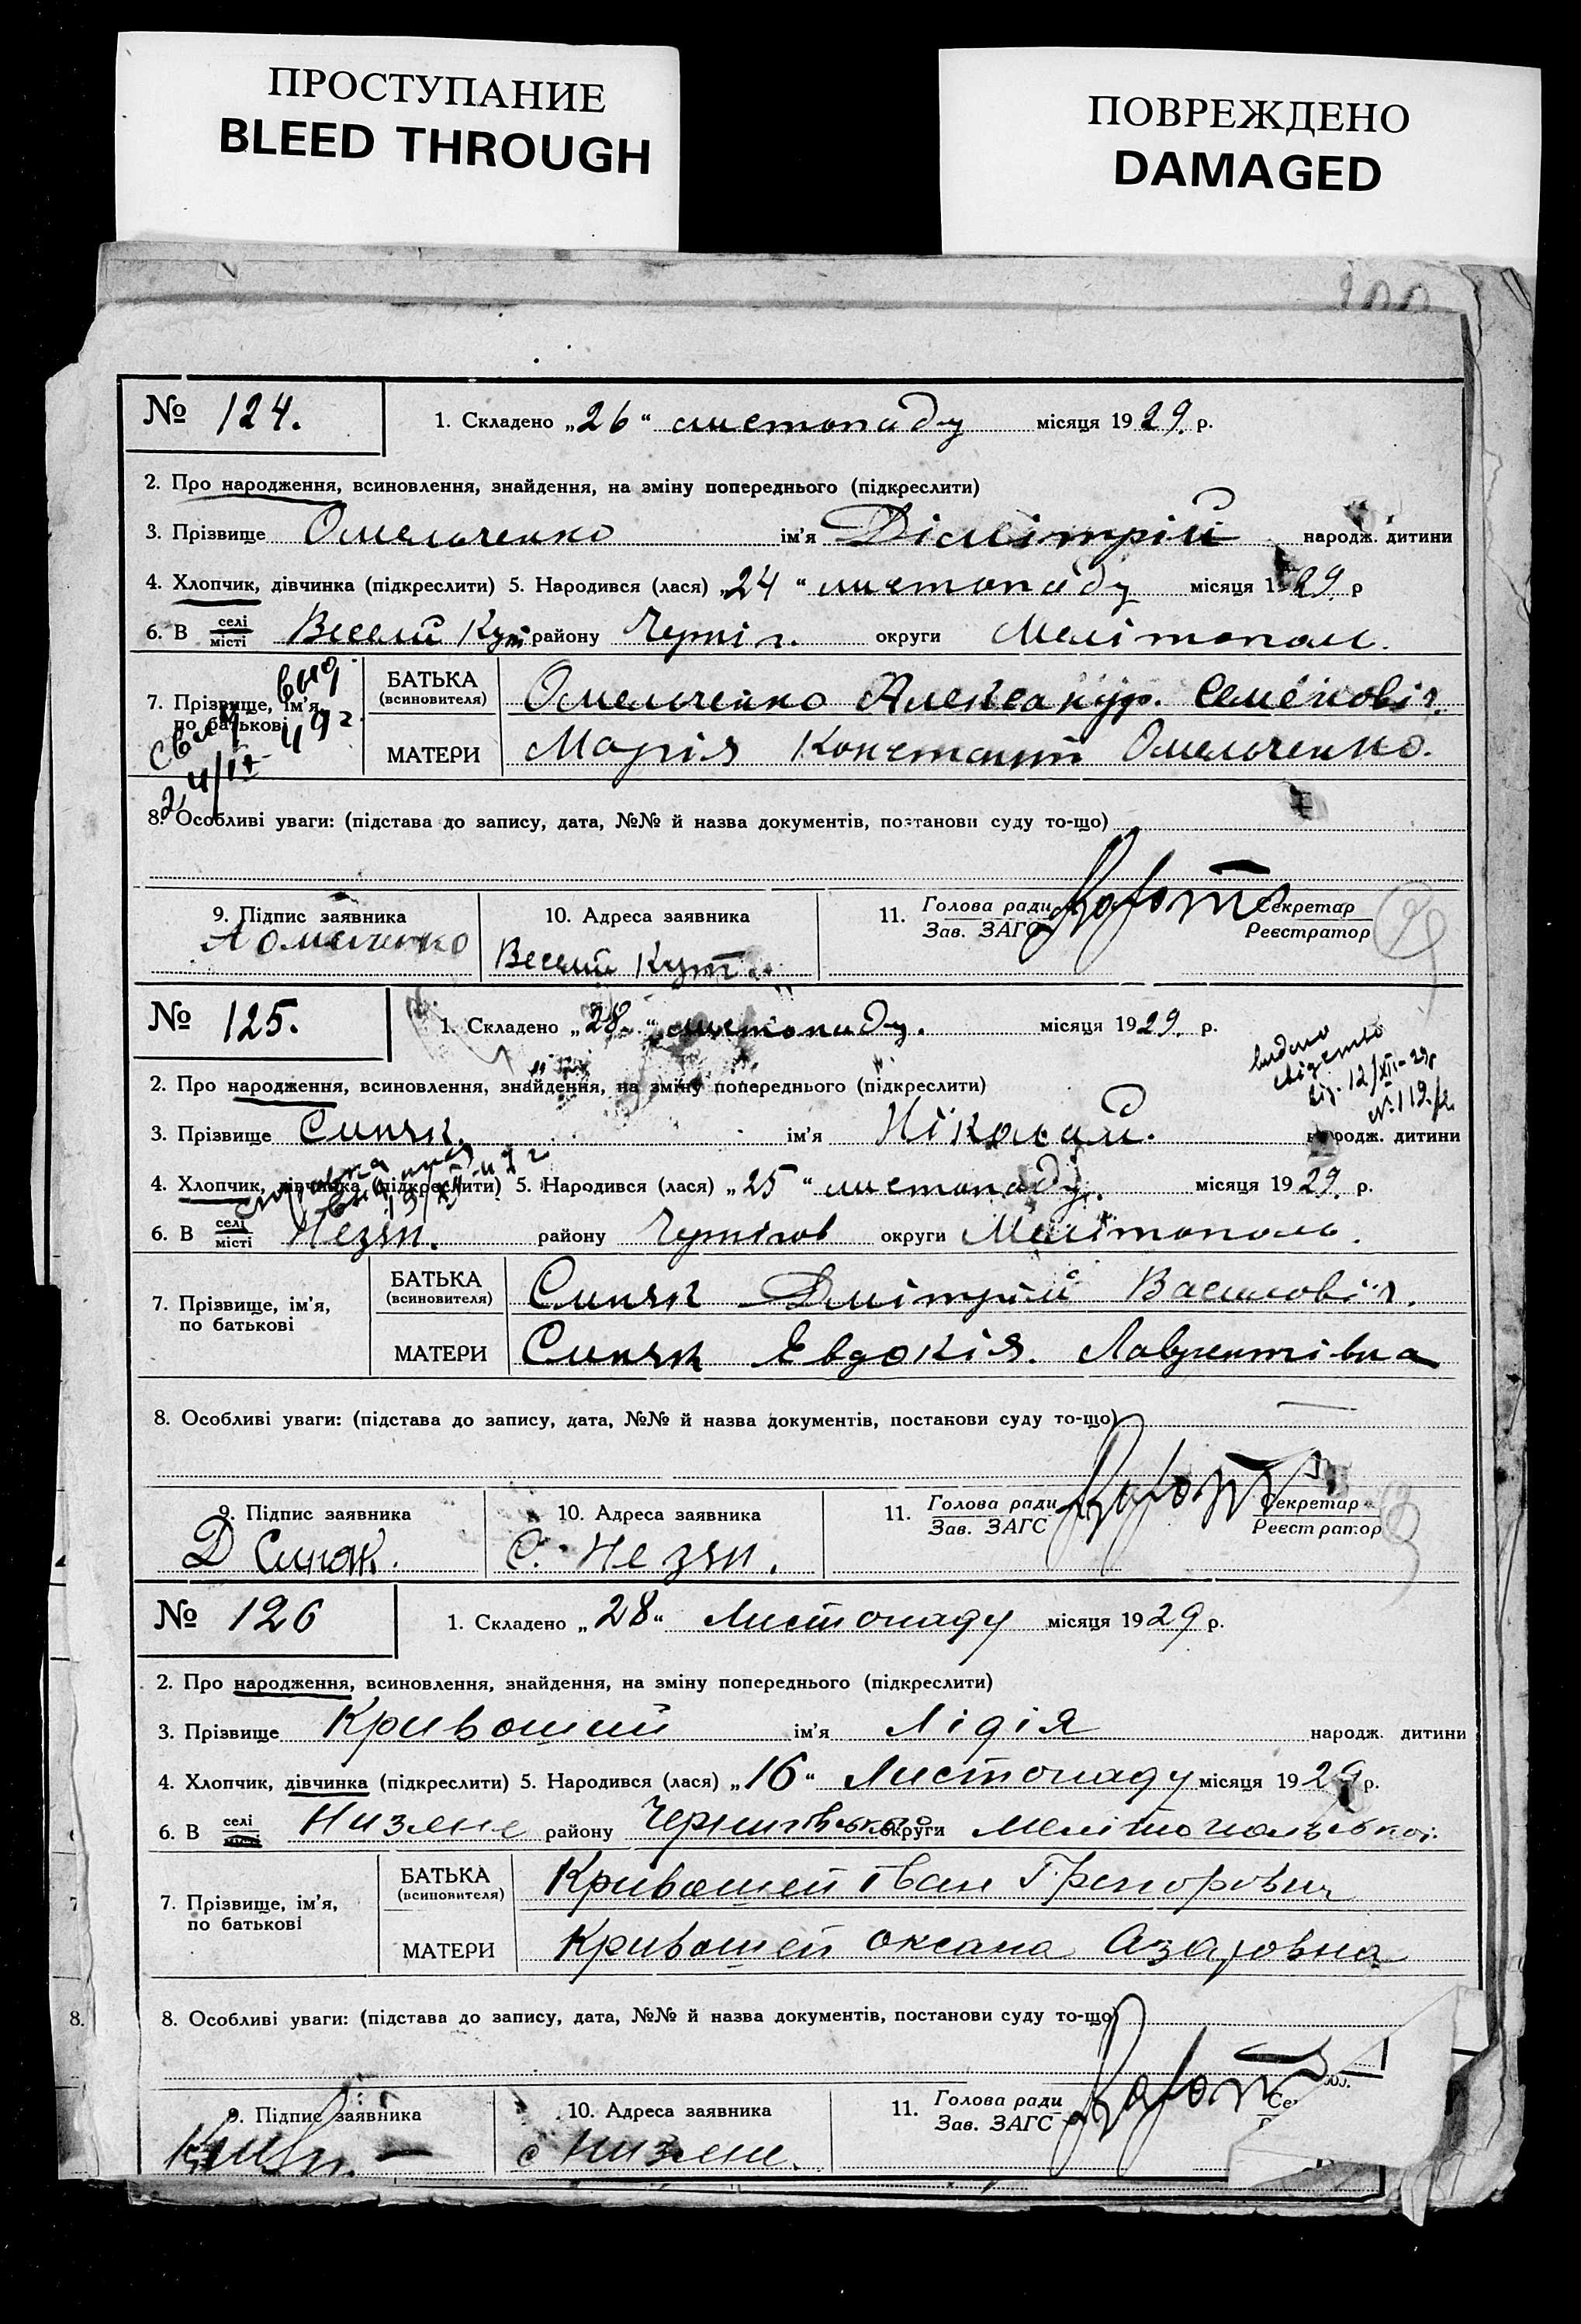 ПРОСТУПАНИЕ
BLEED THROUGH
ПОВРЕЖДЕНО
DAMAGED
№ 124. 1. Складено „26“ листопаду місяця 1929. р.
2. Про народження, всиновлення, знайдення, на зміну попереднього (підкреслити)
3. Прізвище Омельченко ім'я Дімітрій народж. дитини
4. Хлопчик, дівчинка (підкреслити) 5. Народився (лася) „24“ листопаду місяця 1929. р
6. В селі місті Весели Кут району Черніг. округи Мелітополь.
7. Прізвище, ім'я, по батькові
БАТЬКА (всиновителя) Омельченко Александр. Семенович.
МАТЕРИ Марія Констант Омельченко.
8. Особливі уваги: (підстава до запису, дата, №№ й назва документів, постанови суду то-що)
9. Підпис заявника 10. Адреса заявника 11. Голова ради Зав. ЗАГС Секретар Реєстратор
А Омельченко Весели Кут.
№ 125. 1. Складено „28“ листопаду. місяця 1929. р.
2. Про народження, всиновлення, знайдення, на зміну попереднього (підкреслити)
видано
від. 12/XII-29р
№ 119/
3. Прізвище Синяк. ім'я Ніколай. народж. дитини
4. Хлопчик, дівчинка (підкреслити) 5. Народився (лася) „25“ листопаду. місяця 1929. р.
6. В селі місті Незян. району Чернігов округи Мелітополь.
7. Прізвище, ім'я, по батькові
БАТЬКА (всиновителя) Синяк Дмітрій Васильовіч.
МАТЕРИ Синяк Евдокія. Лаврентівна
8. Особливі уваги: (підстава до запису, дата, №№ й назва документів, постанови суду то-що)
9. Підпис заявника 10. Адреса заявника 11. Голова ради Зав. ЗАГС Секретар Реєстратор
Д Синяк. С. Незян.
№ 126 1. Складено „28“ Листопаду місяця 1929 р.
2. Про народження, всиновлення, знайдення, на зміну попереднього (підкреслити)
3. Прізвище Кривоший ім'я Лідія народж. дитини
4. Хлопчик, дівчинка (підкреслити) 5. Народився (лася) „16“ Листопаду місяця 1929 р.
6. В селі місті Низяне району Чернигівсько округи Мелітопольської.
7. Прізвище, ім'я, по батькові
БАТЬКА (всиновителя) Кривошей Іван Григорович
МАТЕРИ Кривошей Оксана Азаровна
8. Особливі уваги: (підстава до запису, дата, №№ й назва документів, постанови суду то-що)
9. Підпис заявника 10. Адреса заявника 11. Голова ради Зав. ЗАГС
с Низяне.